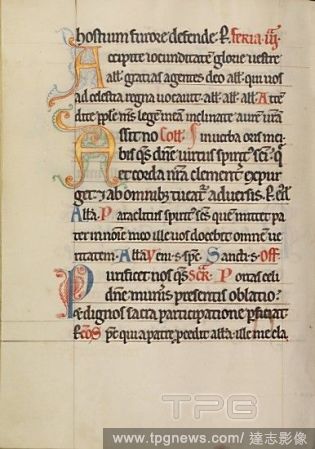 hostium furore defende. P. feria .iii.
Accipite iocunditatem glorie uestre
all'a. gratias agentes deo all'a. qui uos
ad celestia regna uocauit. all'a. all'a. all'a. Atten
dite pp'le m's legē meā inclinate aurē ur̄am
Assit no Coll'. in uerba oris mei.
bis qs̄ dn̄e uirtus spiritꝰ sc̄i. q̄
et corda nr̄a clementer expur
get. et ab omnibꝫ tueatʳ aduersis. P.
Alla. Paraclitus spiritꝰ sc̄s quem mittet pa
ter in noīe meo ille uos docebit omnem ue
ritatem. Alla. Veni. s. spc̄. Sancti. s. Off.
Purificet nos qs̄ Scr̄. Portas celi
dn̄e muneris presentis oblatio.
et dignos sacra participatione ꝑficiat.
Cōō Spc̄ qui a patre ꝓcedit alla. ille me cla
TPG
www.tpgnews.com/達志影像